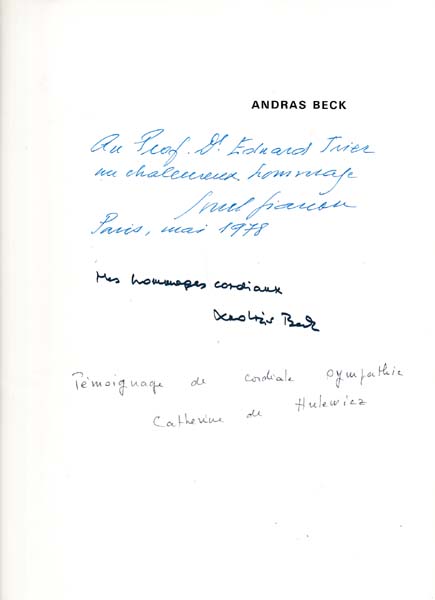 ANDRAS BECK
Au Prof. Dr Eduard Trier
un chaleureux hommage
Ionel Jianou
Paris, mai 1978
Mes hommages cordiaux
András Beck
Témoignage de cordiale sympathie
Catherine de Hulewicz